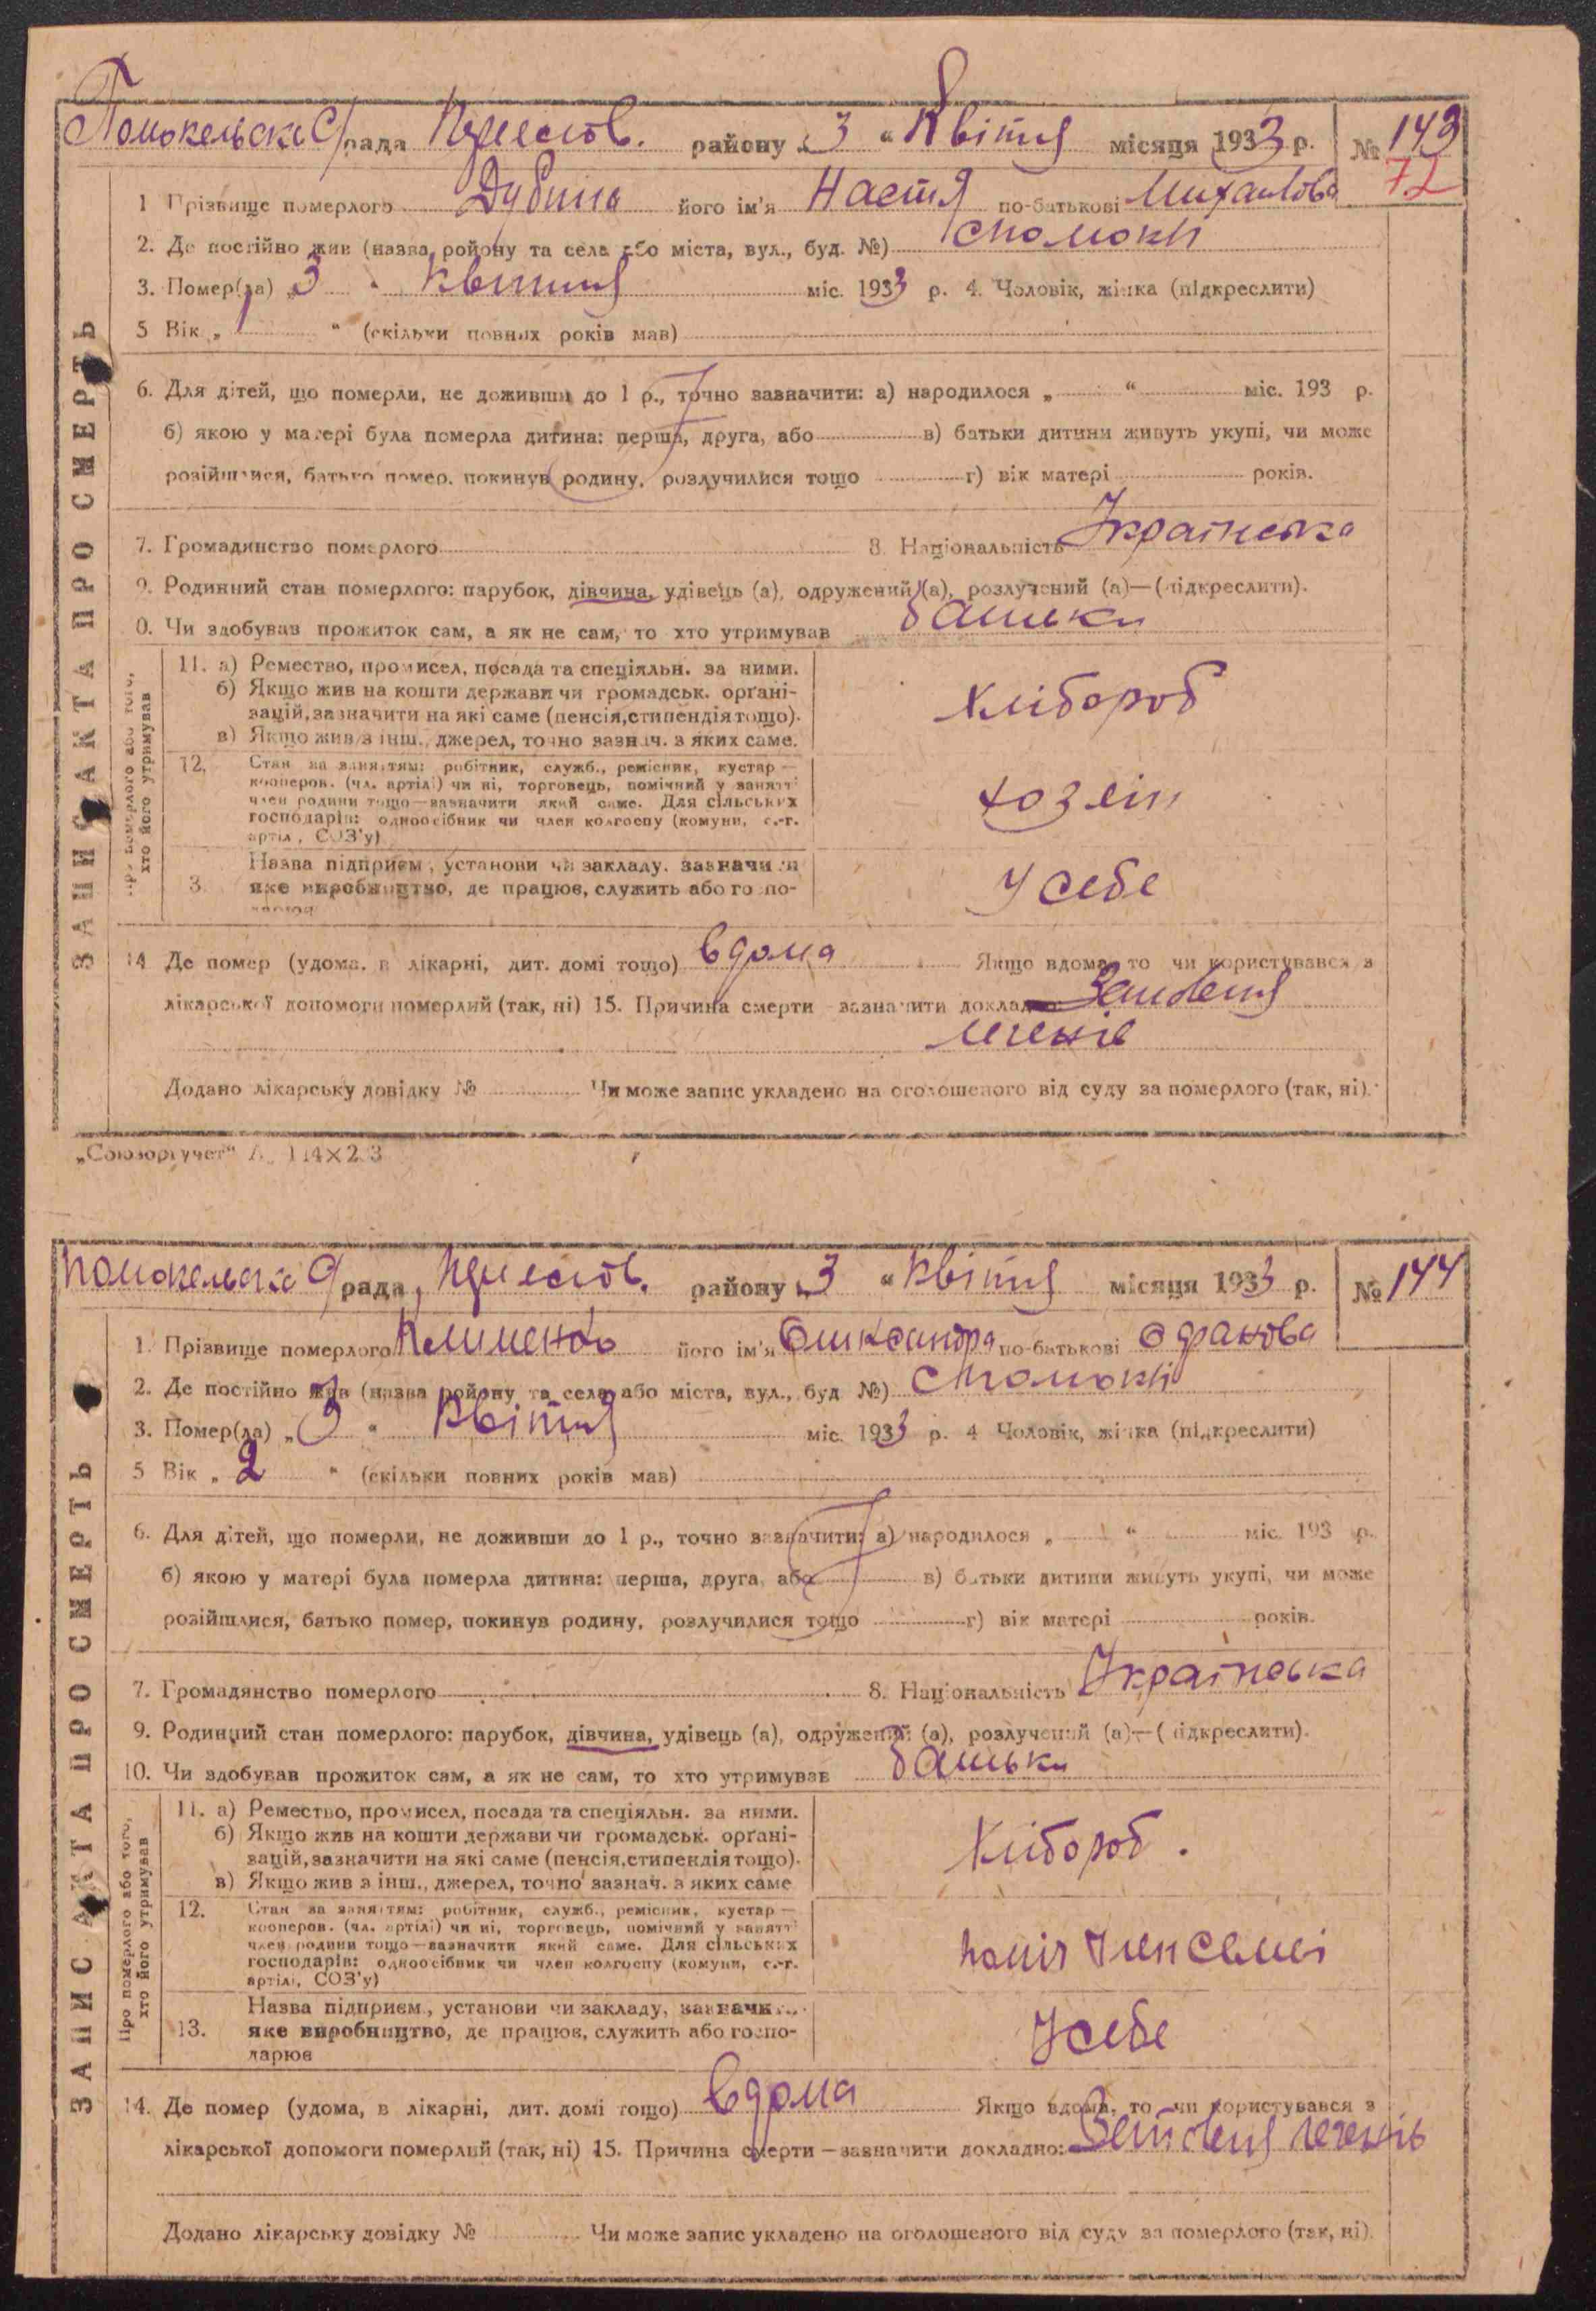 Помокельська С/рада Переясов. району „3“ Квітня місяця 1933 р. № 143
72
1 Прізвище померлого Дубина його ім'я Настя по-батькові Михалова
2. Де постійно жив (назва ройону та села або міста, вул., буд. №) Стомоки
3. Помер(ла) „3“ Квітня міс. 1933 р. 4. Чоловік, жінка (підкреслити)
5 Вік „1“ (скільки повних років мав)
6. Для дітей, що померли, не доживши до 1 р., точно зазначити: а) народилося „ “ міс. 193 р.
б) якою у матері була померла дитина: перша, друга, або в) батьки дитини живуть укупі, чи може
розійшлися, батько помер, покинув родину, розлучилися тощо г) вік матері років.
7. Громадянство померлого 8. Національність Українська
9. Родинний стан померлого: парубок, дівчина, удівець (а), одружений (а), розлучений (а)—(підкреслити).
0. Чи здобував прожиток сам, а як не сам, то хто утримував батьки
ЗАПИС АКТА ПРО СМЕРТЬ
Про померлого або того,
хто його утримував
11. а) Ремество, промисел, посада та спеціяльн. за ними.
б) Якщо жив на кошти держави чи громадськ. орґані-
зацій, зазначити на які саме (пенсія, стипендія тощо).
в) Якщо жив з інш., джерел, точно зазнач. з яких саме.
Хлібороб
12. Стан за заняттям: робітник, служб., ремісник, кустар —
кооперов. (чл. артілі) чи ні, торговець, помічний у занятті
член родини тощо—зазначити який саме. Для сільських
господарів: одноосібник чи член колгоспу (комуни, с.-г.
артіл., СОЗ'у)
хозяін
3. Назва підприєм., установи чи закладу, зазначити
яке виробництво, де працює, служить або госпо-
дарює
У себе
14 Де помер (удома, в лікарні, дит. домі тощо) вдома Якщо вдома, то чи користувався з
лікарської допомоги померлий (так, ні) 15. Причина смерти — зазначити докладно:
легенів
Додано лікарську довідку № Чи може запис укладено на оголошеного від суду за померлого (так, ні).
„Союзоргучет“
Помокельська С/рада, Переясов. району „3“ Квітня місяця 1933 р. № 144
1. Прізвище померлого Клименко його ім'я Олександра по-батькові
2. Де постійно жив (назва ройону та села або міста, вул., буд №) Стомоки
3. Помер(ла) „3“ Квітня міс. 1933 р. 4 Чоловік, жінка (підкреслити)
5 Вік „2“ (скільки повних років мав)
6. Для дітей, що померли, не доживши до 1 р., точно зазначити: а) народилося „ “ міс. 193 р.
б) якою у матері була померла дитина: перша, друга, або в) батьки дитини живуть укупі, чи може
розійшлися, батько помер, покинув родину, розлучилися тощо г) вік матері років.
7. Громадянство померлого 8. Національність Українська
9. Родинний стан померлого: парубок, дівчина, удівець (а), одружений (а), розлучений (а)—(підкреслити).
10. Чи здобував прожиток сам, а як не сам, то хто утримував батьки
ЗАПИС АКТА ПРО СМЕРТЬ
Про померлого або того,
хто його утримував
11. а) Ремество, промисел, посада та спеціяльн. за ними.
б) Якщо жив на кошти держави чи громадськ. орґані-
зацій, зазначити на які саме (пенсія, стипендія тощо).
в) Якщо жив з інш., джерел, точно зазнач. з яких саме
Хлібороб.
12. Стан за заняттям: робітник, служб., ремісник, кустар —
кооперов. (чл. артілі) чи ні, торговець, помічний у занятті
член родини тощо—зазначити який саме. Для сільських
господарів: одноосібник чи член колгоспу (комуни, с.-г.
артіл., СОЗ'у)
13. Назва підприєм., установи чи закладу, зазначити
яке виробництво, де працює, служить або госпо-
дарює
У себе
14. Де помер (удома, в лікарні, дит. домі тощо) вдома Якщо вдома, то чи користувався з
лікарської допомоги померлий (так, ні) 15. Причина смерти — зазначити докладно: легенів
Додано лікарську довідку № Чи може запис укладено на оголошеного від суду за померлого (так, ні).